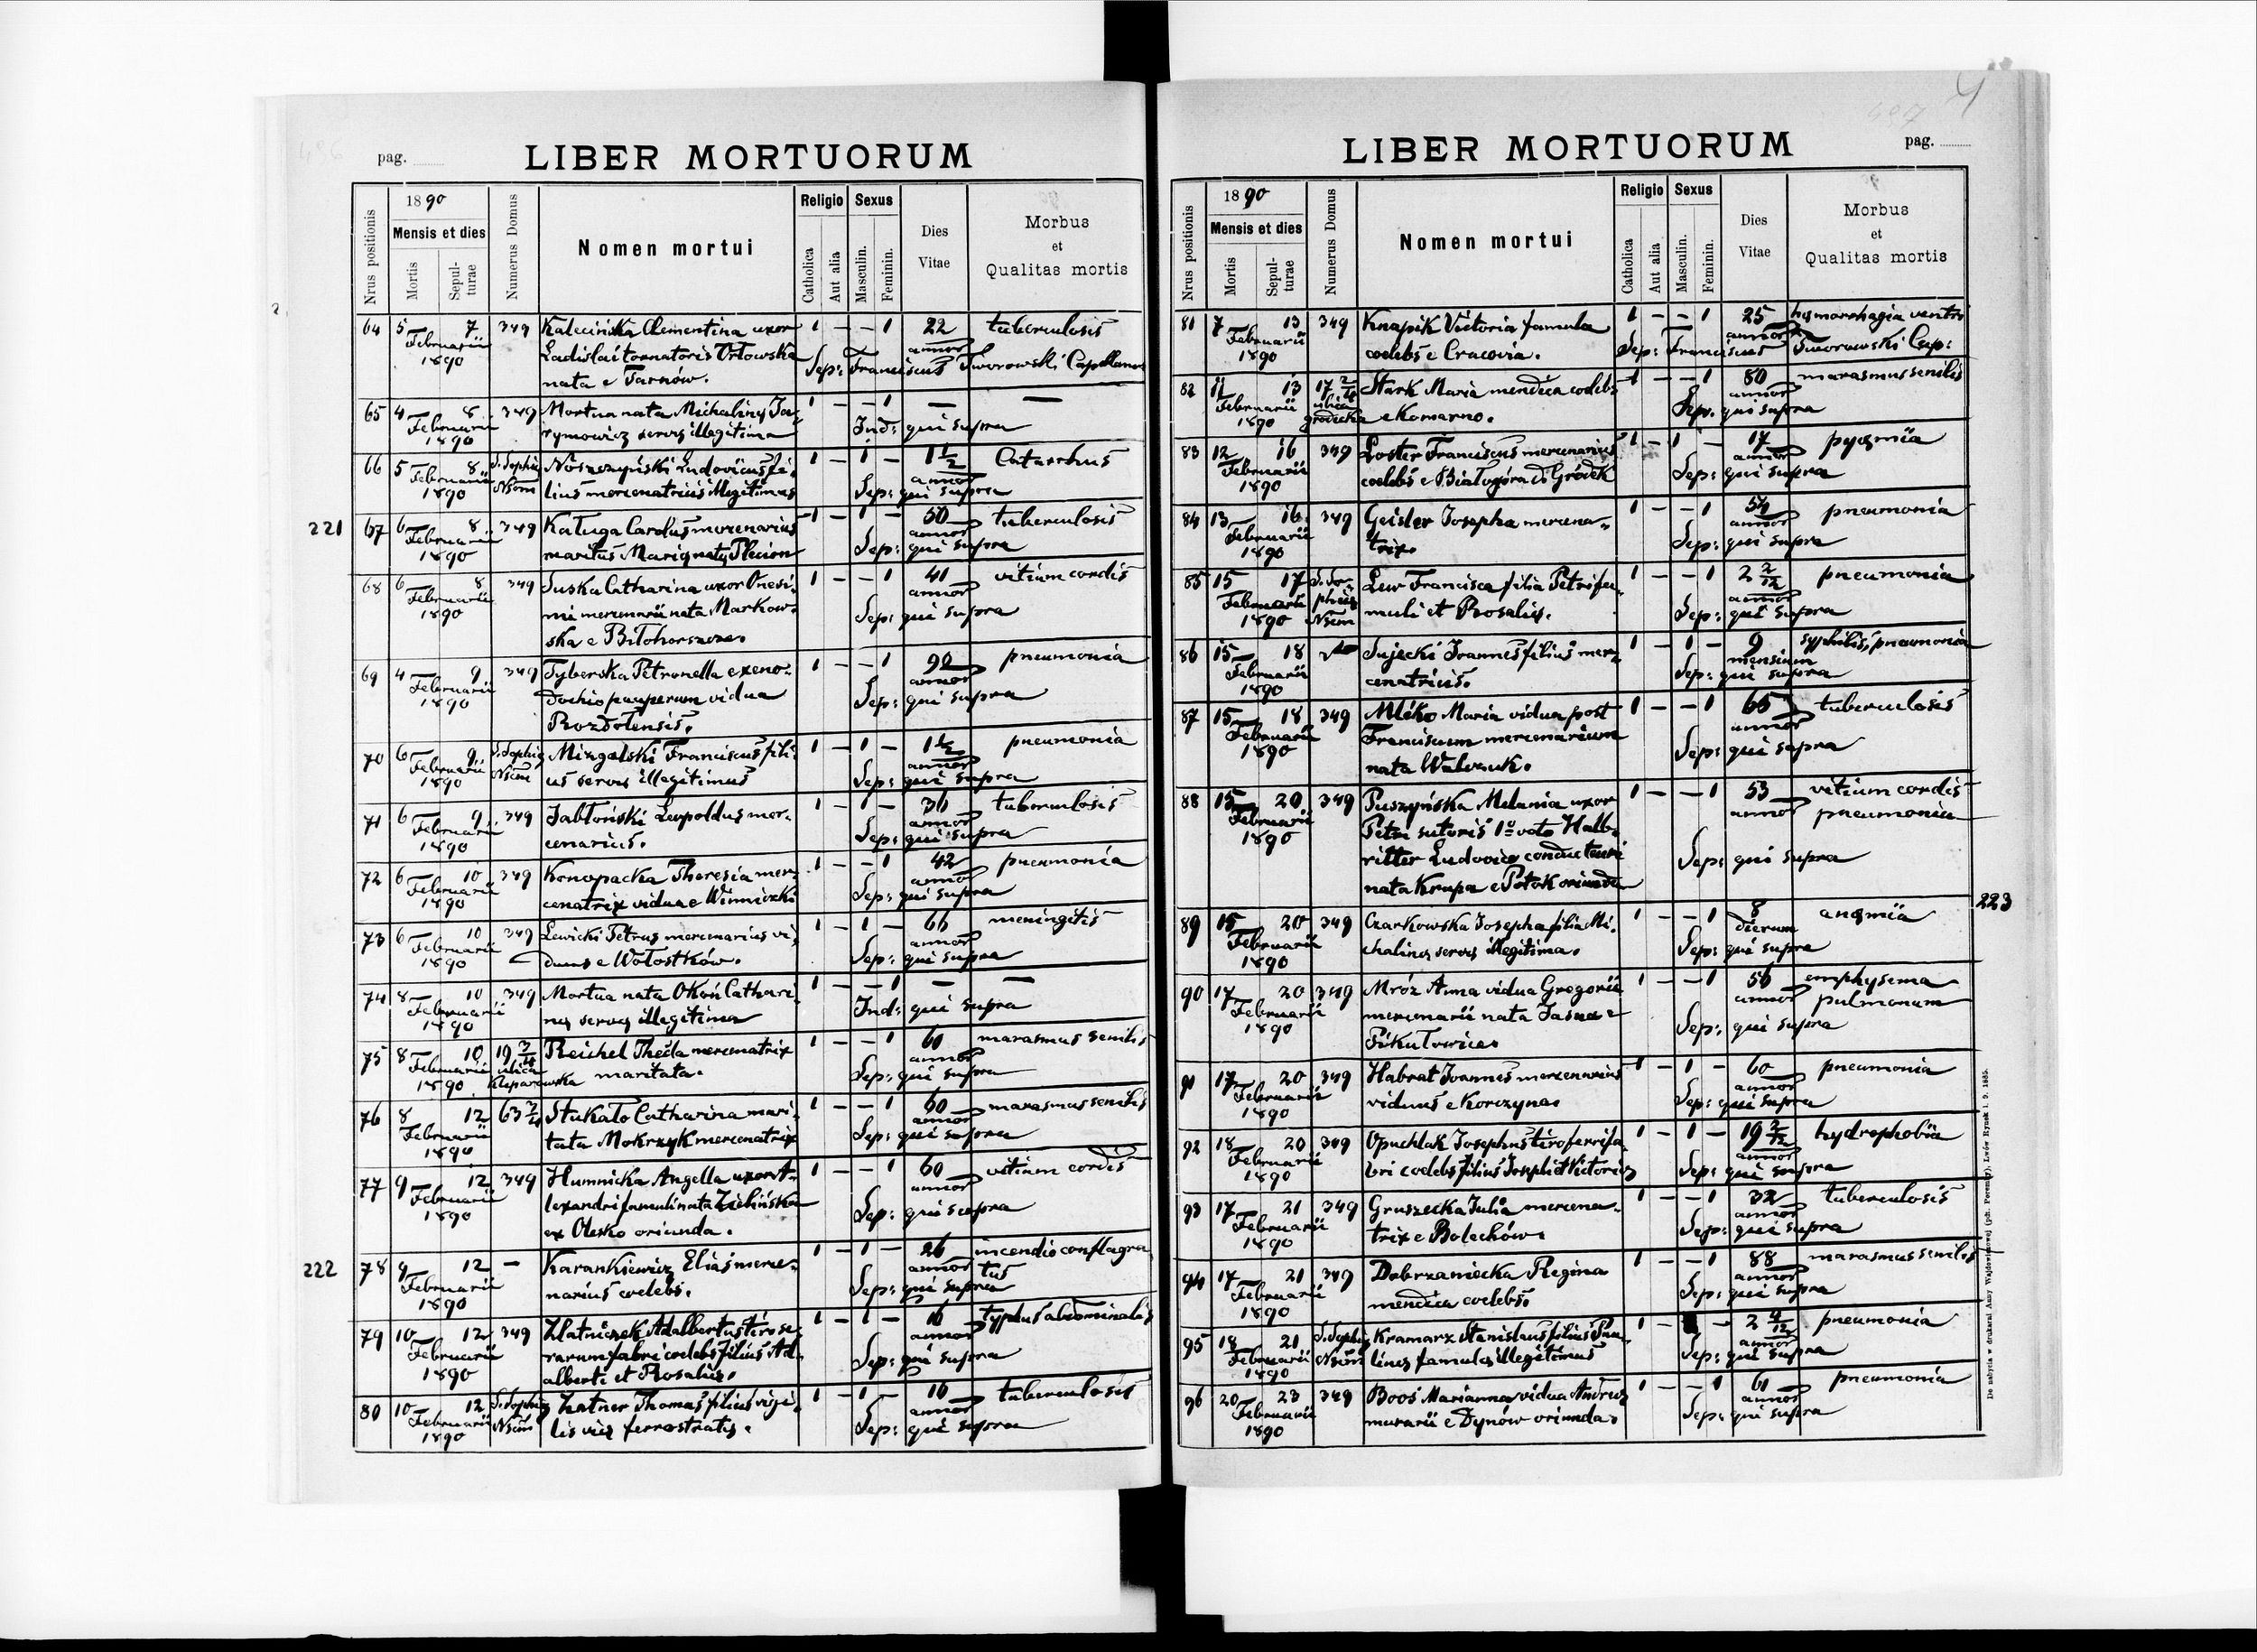 pag.
LIBER MORTUORUM
Nrus positionis
1890
Mensis et dies
Mortis
Sepul-
turae
Numerus Domus
Nomen mortui
Religio
Catholica
Aut alia
Sexus
Masculin.
Feminin.
Dies
Vitae
Morbus
et
Qualitas mortis
64 5 7 349 Kalecińska Clementina uxor 1 — — 1 22 tuberculosis
Februarii Ladislai tornatoris Orłowska annor
1890 nata e Tarnów. Sep: Franciscus Tworowski Capellanus
65 4 8 349 Mortua nata Michalinę Ja- 1 — — 1 — —
Februarii rymowicz servę illegitima Ind: qui supra
1890
66 5 8 S. Sophię Noszczyński Ludovicus fi- 1 — 1 — 1 1/2 Catarrhus
Februarii Nsom lius mercenatricis illegitimus annor
1890 Sep: qui supra
221
67 6 8 349 Kaługa Carolus mercenarius 1 — 1 — 50 tuberculosis
Februarii maritus Marię natę Plecion annor
1890 Sep: qui supra
68 6 8 349 Suska Catharina uxor Onesi- 1 — — 1 41 vitium cordis
Februarii mi mercenarii nata Markow- annor
1890 ska e Biłohorszcze. Sep: qui supra
69 4 9 349 Tyberska Petronella e xeno- 1 — — 1 90 pneumonia
Februarii dochio pauperum vidua annor
1890 Rozdołensis. Sep: qui supra
70 6 9 S. Sophię Mizgalski Franciscus fili- 1 — 1 — 1 1/2 pneumonia
Februarii Nsom us servę illegitimus annor
1890 Sep: qui supra
71 6 9 349 Jabłoński Leopoldus mer- 1 — 1 — 36 tuberculosis
Februarii cenarius. annor
1890 Sep: qui supra
72 6 10 349 Konopacka Theresia mer- 1 — — 1 42 pneumonia
Februarii cenatrix vidua e Winniczki annor
1890 Sep: qui supra
73 6 10 349 Lewicki Petrus mercenarius vi- 1 — 1 — 66 meningitis
Februarii duus e Wołostków. annor
1890 Sep: qui supra
74 8 10 349 Mortua nata Okoń Cathari- 1 — — 1 — —
Februarii nę servę illegitima Ind: qui supra
1890
75 8 10 19 3/4 Reichel Thecla mercenatrix 1 — — 1 60 marasmus senilis
Februarii ulica maritata. annor
1890 Kleparowska Sep: qui supra
76 8 12 63 2/4 Stukało Catharina mari- 1 — — 1 60 marasmus senilis
Februarii tata Mokrzyk mercenatrix annor
1890 Sep: qui supra
77 9 12 349 Humnicka Angella uxor A- 1 — — 1 60 vitium cordis
Februarii lexandri famuli nata Zielińska annor
1890 ex Olesko oriunda. Sep: qui supra
222
78 9 12 — Karankiewicz Elias merce- 1 — 1 — 26 incendio conflagra
Februarii narius coelebs. annor tus
1890 Sep: qui supra
79 10 12 349 Złatniczek Adalbertus tiro se- 1 — 1 — 16 typhus abdominalis
Februarii rarum fabri coelebs filius Ad- annor
1890 alberti et Rosalię. Sep: qui supra
80 10 12 S. Sophię Zatner Thomas filius vigi- 1 — 1 — 16 tuberculosis
Februarii Nsom lis vię ferrostratę. annor
1890 Sep: qui supra
LIBER MORTUORUM
pag.
Nrus positionis
1890
Mensis et dies
Mortis
Sepul-
turae
Numerus Domus
Nomen mortui
Religio
Catholica
Aut alia
Sexus
Masculin.
Feminin.
Dies
Vitae
Morbus
et
Qualitas mortis
81 7 13 349 Knapik Victoria famula 1 — — 1 25 hęmorrhagia ventri
Februarii coelebs e Cracovia. annor
1890 Sep: Franciscus Tworowski Cap:
82 11 13 17 2/4 Stark Maria mendica coelebs 1 — — 1 80 marasmus senilis
Februarii ulica e Komarno. annor
1890 grodecka Sep. qui supra
83 12 16 349 Loster Franciscus mercenarius 1 — 1 — 17 pyęmia
Februarii coelebs e Białogóra ad Gródek annor
1890 Sep: qui supra
84 13 16 349 Geisler Josepha mercena- 1 — — 1 54 pneumonia
Februarii trix. annor
1890 Sep: qui supra
85 15 17 S. So- Lew Francisca filia Petri fa- 1 — — 1 2 2/12 pneumonia
Februarii phię muli et Rosalię. annor
1890 Nsom Sep: qui supra
86 15 18 Sujecki Joannes filius mer- 1 — 1 — 9 syphilis, pneumonia
Februarii cenatricis. mensium
1890 Sep: qui supra
87 15 18 349 Mléko Maria vidua post 1 — — 1 65 tuberculosis
Februarii Franciscum mercenarium annor
1890 nata Walczuk. Sep: qui supra
88 15 20 349 Puszyńska Melania uxor 1 — — 1 53 vitium cordis
Februarii Petri sutoris 1º voto Halb- annor pneumonia
1890 ritter Ludovico conductori
nata Krupa e Potok oriunda Sep: qui supra
223
89 15 20 349 Czarkowska Josepha filia Mi- 1 — — 1 8 anęmia
Februarii chalinę servę illegitima. dierum
1890 Sep: qui supra
90 17 20 349 Mróz Anna vidua Gregorii 1 — — 1 56 emphysema
Februarii mercenarii nata Jasna e annor pulmonum
1890 Pikułowice. Sep: qui supra
91 17 20 349 Habrat Joannes mercenarius 1 — 1 — 60 pneumonia
Februarii viduus e Korczyna. annor
1890 Sep: qui supra
92 18 20 349 Opuchlak Josephus tiro ferrifa- 1 — 1 — 19 2/12 hydrophobia
Februarii bri coelebs filius Josephi et Victorię annor
1890 Sep: qui supra
93 17 21 349 Gruszecka Julia mercena- 1 — — 1 32 tuberculosis
Februarii trix e Bolechów. annor
1890 Sep: qui supra
94 17 21 349 Dobrzaniecka Regina 1 — — 1 88 marasmus senilis
Februarii mendica coelebs. annor
1890 Sep: qui supra
95 18 21 S. Sophię Kramarz Stanislaus filius Pau- 1 — — 2 4/12 pneumonia
Februarii Nsom linę famulę illegitimus annor
1890 Sep: qui supra
96 20 23 349 Boos Marianna vidua Andreę 1 — — 1 61 pneumonia
Februarii murarii e Dynów oriunda. annor
1890 Sep: qui supra
De nabycia w drukarni Anny Wajdowiczowej (ph. Poremby), Lwów Rynek l. 9. 1885.